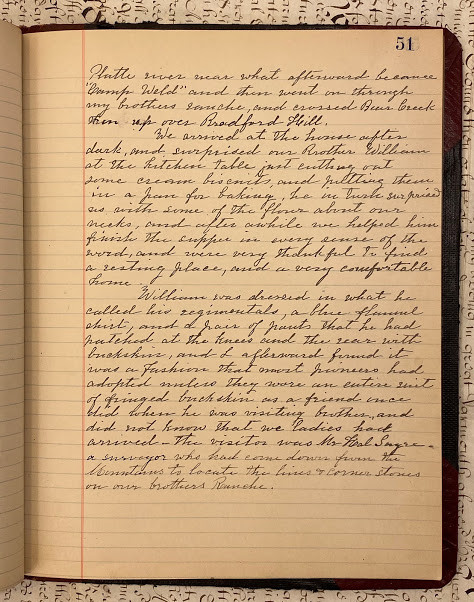 51
Platte river near what afterward became
"Camp Weld" and then went on through
my brothers ranche, and crossed Bear Creek
then up over Bradford Hill.
We arrived at the house after
dark, and surprised our Brother William
at the kitchen table just cutting out
some cream biscuits, and putting them
in a pan for baking, he in turn surprised
us with some of the flour about our
necks, and after awhile we helped him
finish the supper in every sense of the
word, and were very thankful to find
a resting place, and a very comfortable
home.
William was dressed in what he
called his regimentals, a blue flannel
shirt, and a pair of pants that he had
patched at the knees and the rear with
buckskin, and I afterward found it
was a Fashion that most pioneers had
adopted unless they wore an entire suit
of fringed buckskin as a friend once
did when he was visiting brother, and
did not know that we ladies had
arrived - the visitor was Mr Hal Sayre -
a surveyor who had come down from the
Mountains to locate the lines & corner stones
on our brothers Ranche.